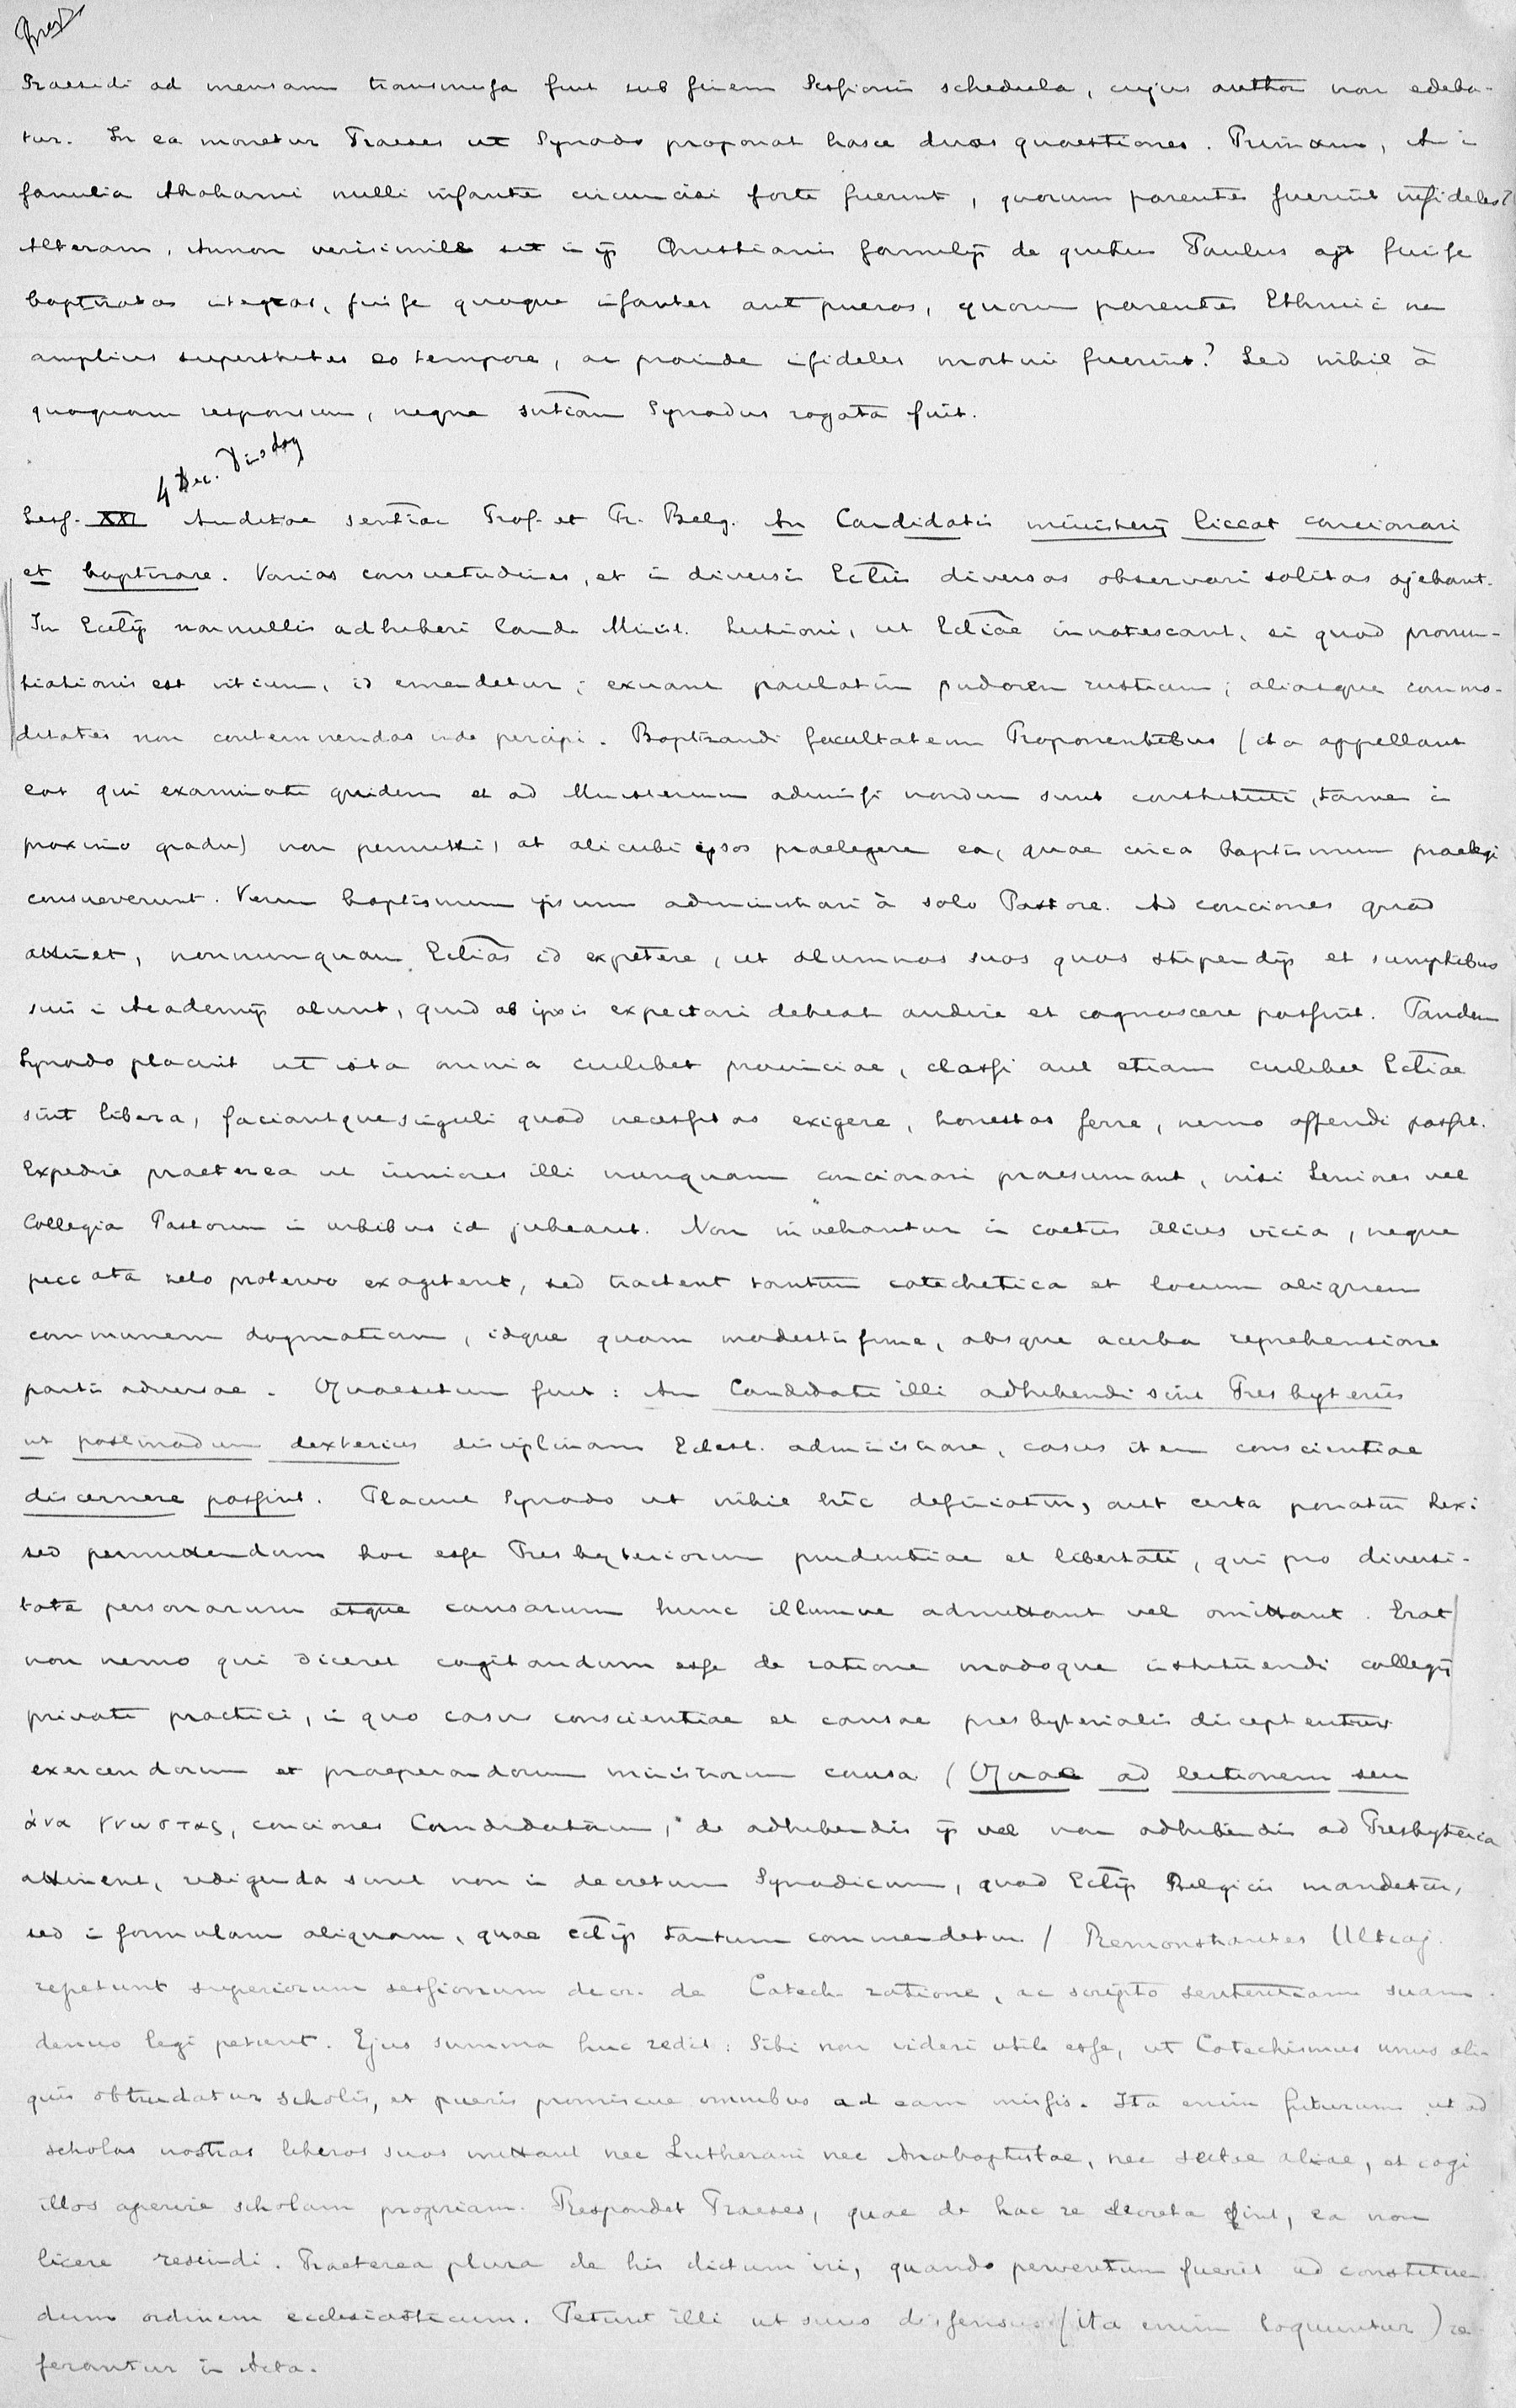 Praesidi ad mensam transmissa fuit sub finem Sessionis schedula, cujus author non edeba-
tur. In ea monetur Praeses ut Synodo proponat hasce duas quaestiones. Primam, An i
familia Abahami nulli infantes circumcisi forte fuerint, quorum parentes fuerint infideles?
Alteram, Annon verisimile sit i ijs Christianis familijs de quibus Paulus ajt fuisse
baptizatas integras, fuisse quoque infantes aut pueros, quorum parentes Ethnici non
amplius superstites eo tempore, ac proinde infideles mortui fuerint? Sed nihil à
quoquam responsum, neque sntiam Synodus rogata fuit.
4 Dec. Dinsdag
Sess. XXI Auditae sentiae Prof. et Fr. Belg. An Candidatis ministerij liceat concionari
et baptizare. Varias consuetudines, et i diversis Ecliis diversas observari solitas ajebant.
In Ecclijs nonnullis adhiberi Cand. Minist. lectioni, ut Ecliae innotescant, si quod pronun-
tiationis est vitium, id emendetur; exuant paulatim pudorem rusticum; aliasque commo-
ditates non contemnendas inde percipi. Baptizandi facultatem Proponentibus (ita appellant
eos qui examinati quidem et ad Ministerium admissi nondum sunt constituti, tamen i
proximo gradu) non permitti, at alicubi ipsos praelegere ea, quae circa baptismum praelegi
consueverunt. Verum baptismum ipsum administrari à solo Pastore. Ad conciones quod
attinet, nonnunquam Eclias id expetere, ut alumnos suos quos stipendijs et sumptibus
suis i Academijs alunt, quid ab ipsis expectari debeat audire et cognoscere possint. Tandem
Synodo placuit ut ista omnia cuilibet provinciae, classi aut etiam cuilibet Ecliae
sint libera, faciantque singuli quod necessitas exigere, honestas ferre, nemo offendi possit.
Expedire praeterea ut iuniores illi nunquam concionari praesumant, nisi Seniores vel
Collegia Pastorum i urbibus id jubeant. Non invehantur i coetus illius vicia, neque
peccata zelo protervo exagitent, sed tractent tantum catechetica et locum aliquem
communem dogmaticum, idque quam modestissime, absque acerba reprehensione
partis adversae. Quaesitum fuit: An Candidati illi adhibendi sint Presbyteriis
ut postmodum dexterius disciplinam Eclest. administrare, casus item conscientiae
discernere possint. Placuit Synodo ut nihil hîc definiatur, aut certa ponatur lex:
sed permittendum hoc esse Presbyteriorum prudentiae et libertati, qui pro diversi-
tate personarum atque causarum hunc illumve admittant vel omittant. Erat
non nemo qui diceret cogitandum esse de ratione modoque instituendi collegij
privati practici, i quo casus conscientiae et causae presbyterialis disceptentur
exercendorum et praeparandorum ministrorum causa (Quae ad lectionem seu
άναγνωστας, conciones Candidatorum, de adhibendis ijs vel non adhibendis ad Presbyteria
attinent, redigenda sunt non i decretum Synodicum, quod Eclijs Belgicis mandetur,
sed i formulam aliquam, quae eclijs tantum commendetur / Remonstrantes Ultraj.
repetunt superiorum sessionum decr. de Catech. ratione, ac scripto sententiam suam
denuo legi petunt. Ejus summa huc redit: Sibi non videri utile esse, ut Catechismus unus ali-
quis obtrudatur scholis, et pueris promiscue omnibus ad eam missis. Ita enim futurum ut ad
scholas nostras liberos suos mittant nec Lutherani nec Anabaptistae, nec sectae aliae, et cogi
illos aperire scholam propriam. Respondet Praeses, quae de hac re decreta sint, ea non
licere rescindi. Praeterea plura de his dictum iri, quando perventum fuerit ad constituen-
dum ordinem ecclesiasticum. Petunt illi ut suus dissensus (ita enim loquuntur) re-
ferantur in Acta.